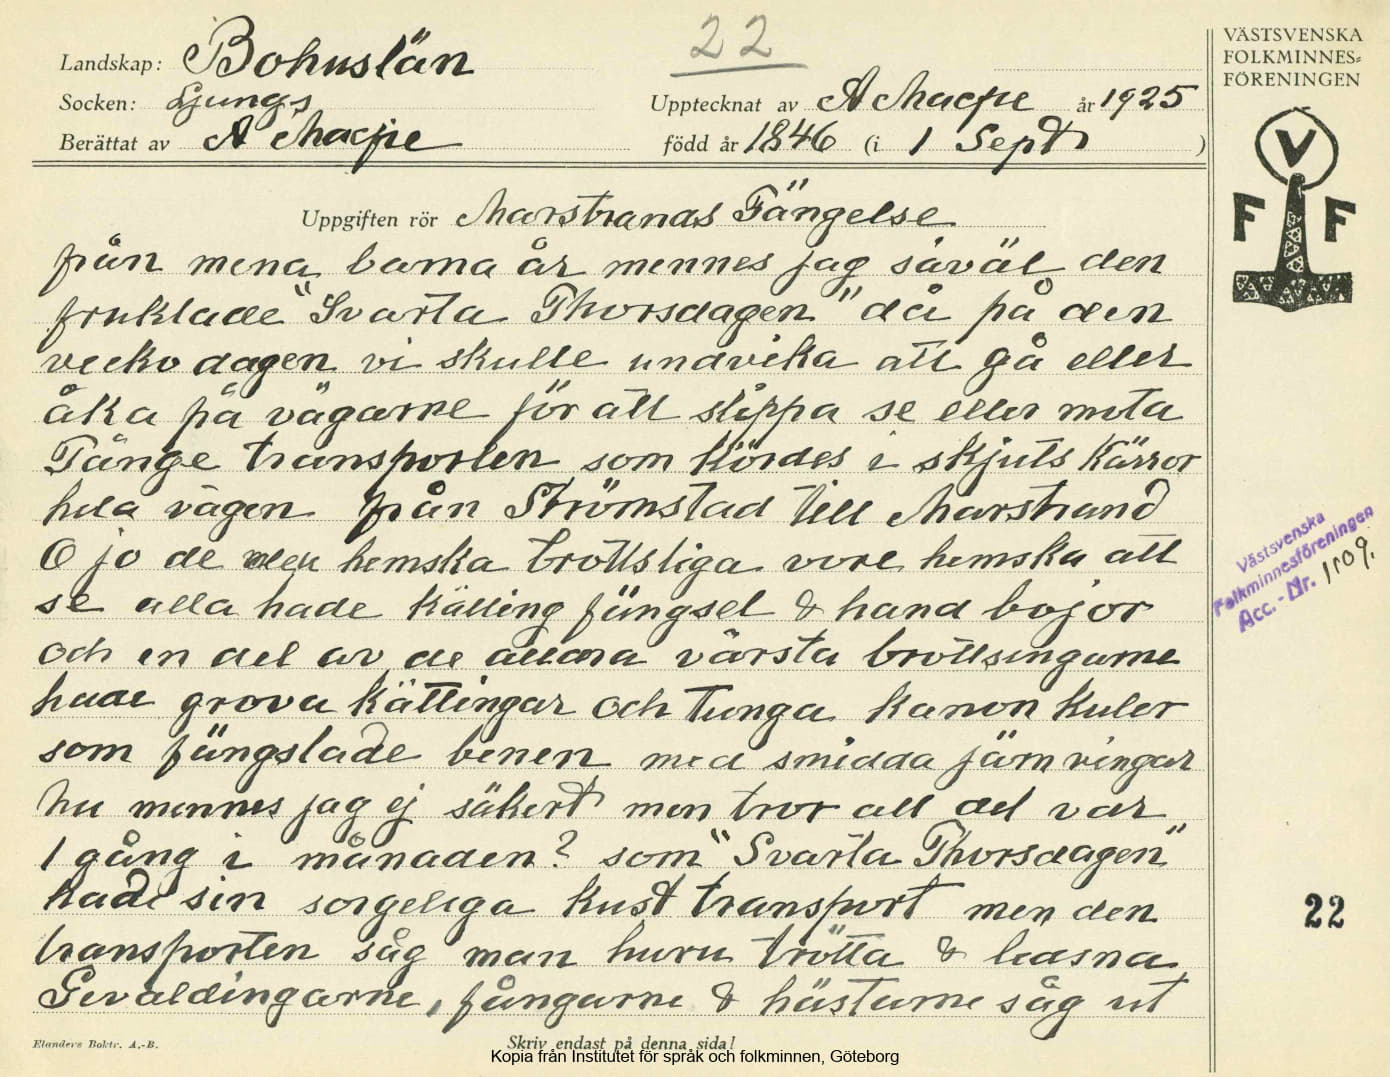 22
Landskap: Bohuslän
Socken: Ljungs
Upptecknat av A Macpie år 1925
Berättat av A Macpie
född år 1846 (i 1 Sept )
Uppgiften rör Marstrands Fängelse
från mena barna år mennes jag såväl den
fruktade "Svarta Thorsdagen" då på den
vecko dagen vi skulle undvika att gå eller
åka på vägarne för att slippa se eller möta
Fånge transporten som kördes i skjuts kärror
hela vägen från Strömstad till Marstrand
O jo de hemska brottsliga vore hemska att
se alla hade kätting fängsel & hand bojor
och en del av de allra värsta brottsingarne
hade grova kättingar och tunga kanon kulor
som fängslade benen med smidda järn ringar
nu mennes jag ej säkert men tror att det var
1 gång i månaden? som "Svarta Thorsdagen"
hade sin sorgeliga kust transport men den
transporten såg man huru trötta & ledsna
Gevaldingarne, fångarne & hästarne såg ut
Elanders Boktr. A.-B.
Skriv endast på denna sida!
Kopia från Institutet för språk och folkminnen, Göteborg
VÄSTSVENSKA
FOLKMINNES=
FÖRENINGEN
V
F F
Västsvenska
Folkminnesföreningen
Acc.-Nr. 1109.
22